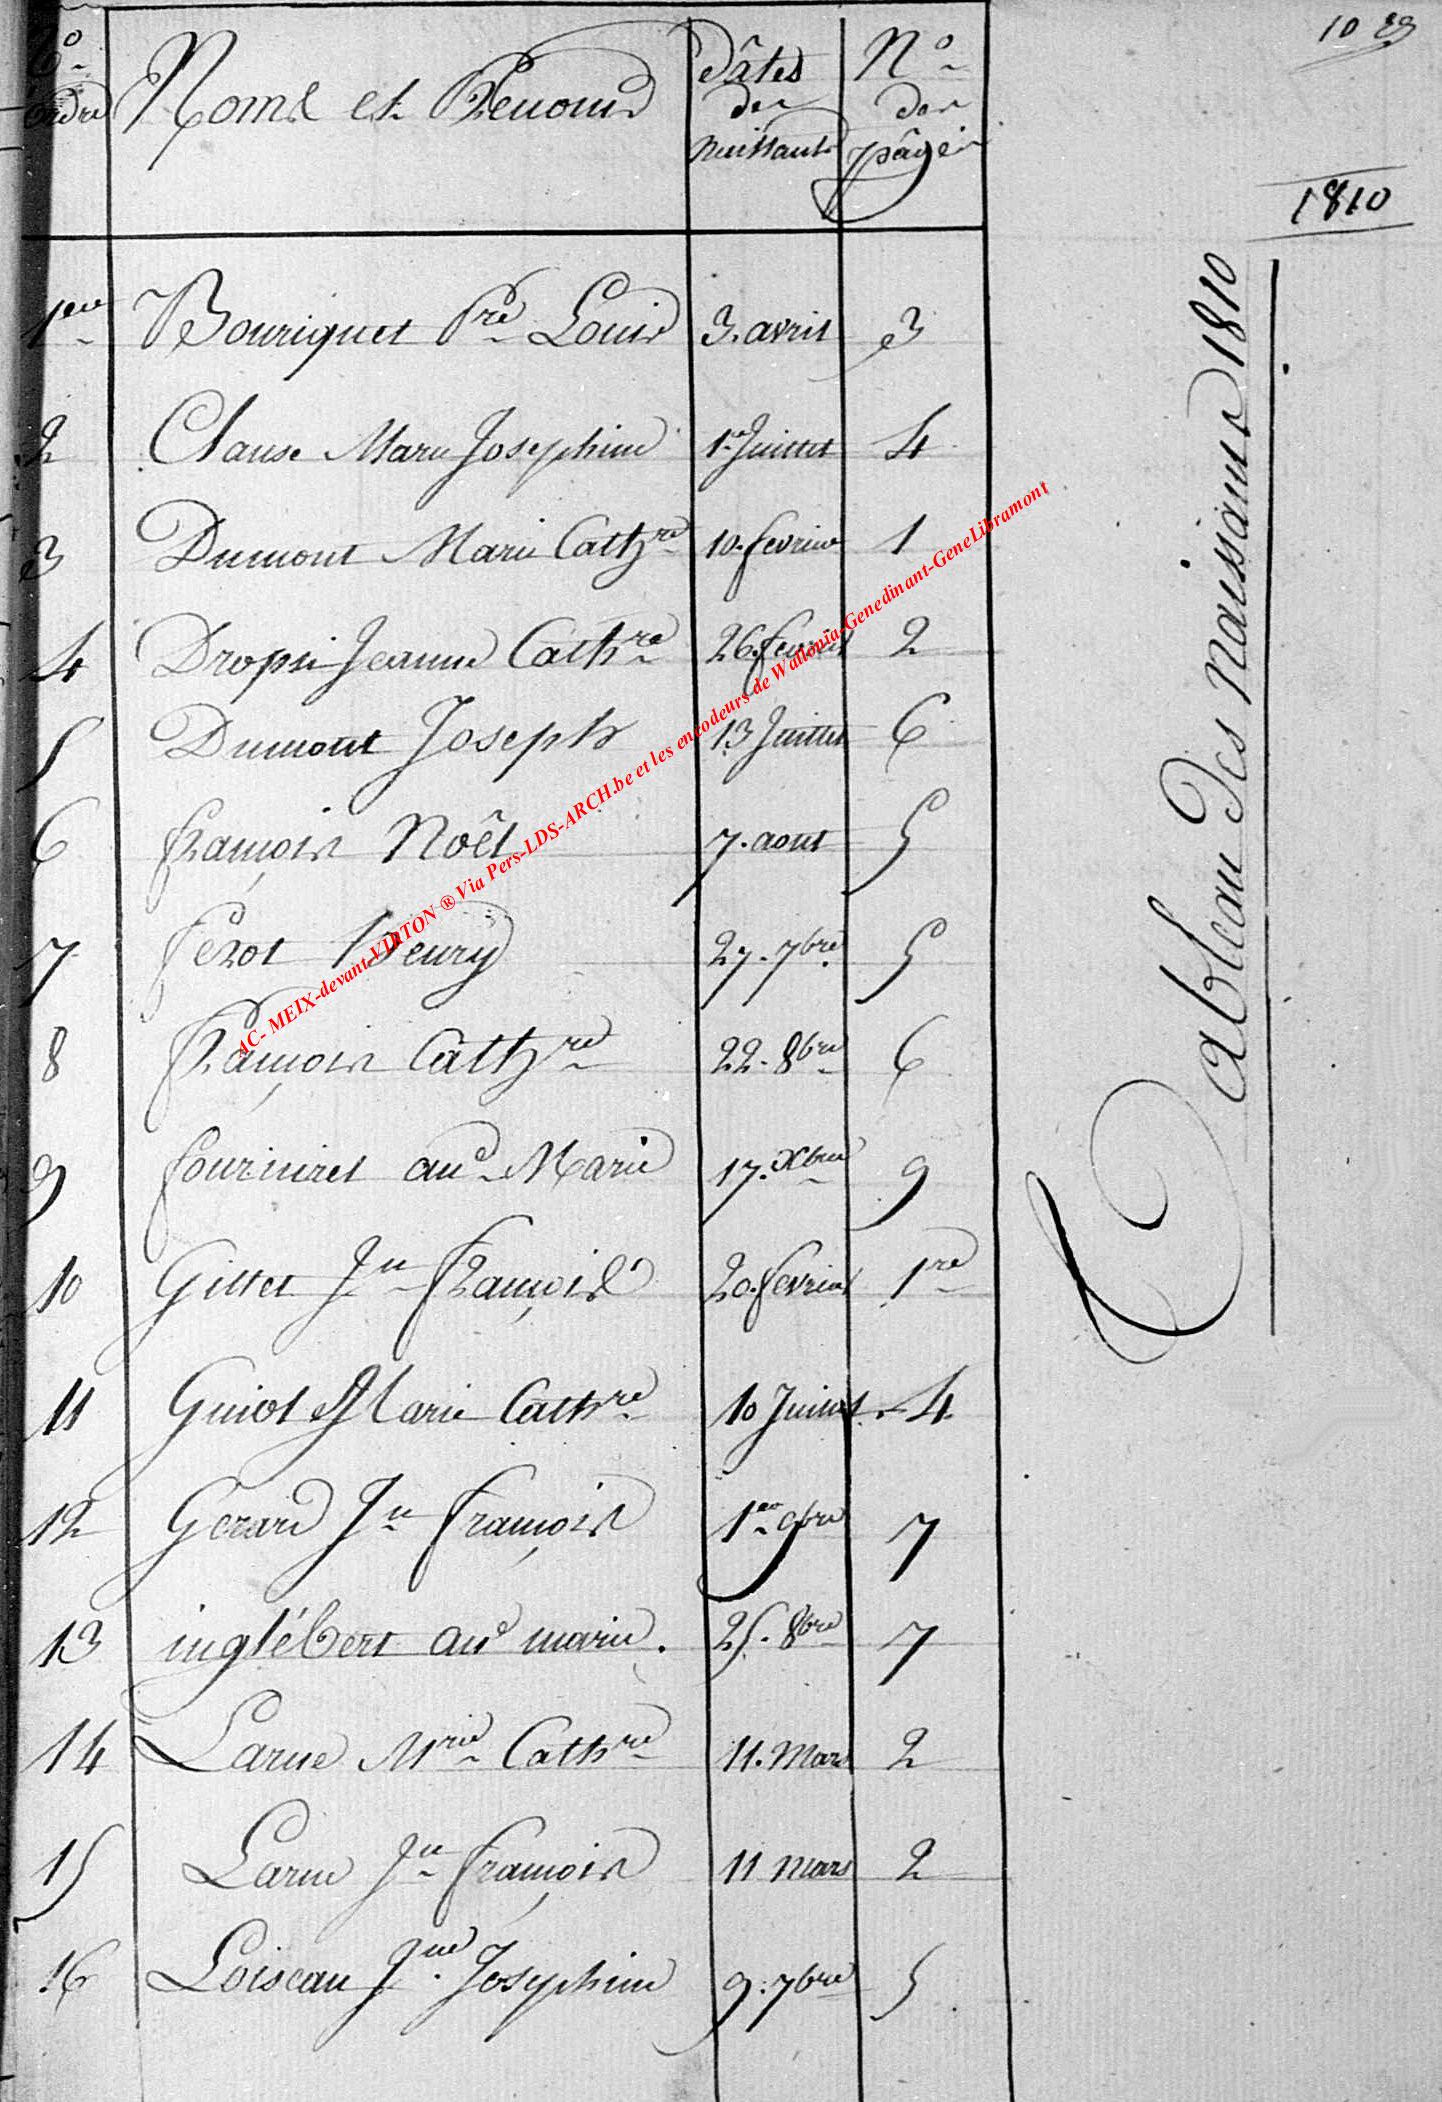 10
1810
Tableau des Naissances 1810
N.o ordre Noms et Prenoms Dâtes des Naissances N.o des pâges
1ere Bouriquet Pre Louis 3. avril 3
2 Clause Marie Josephine 1er Juillet 4
3 Dumont Marie Cathre 10. fevrier 1
4 Dropsi Jeanne Cathre 26. fevrier 2
5 Dumont Joseph 13 Juillet 6
6 françois Noêl 7. aout 5
7 ferot henry 27. 7bre 5
8 françois Cathre 22. 8bre 6
9 fourniret ane Marie 17. Xbre 9
10 Gillet Jn françois 20. fevrier 1re
11 Guiot Marie Cathre 10 Juillet 4
12 Gerard Jn françois 1er 9bre 7
13 inglébert ane marie. 25. 8bre 7
14 Larue Mrie Cathre 11. Mars 2
15 Larue Jn françois 11 Mars 2
16 Loiseau Jne Josephine 9. 7bre 5
AC- MEIX-devant-VIRTON ® Via Pers-LDS-ARCH.be et les encodeurs de Wallonia-Genedinant-GeneLibramont